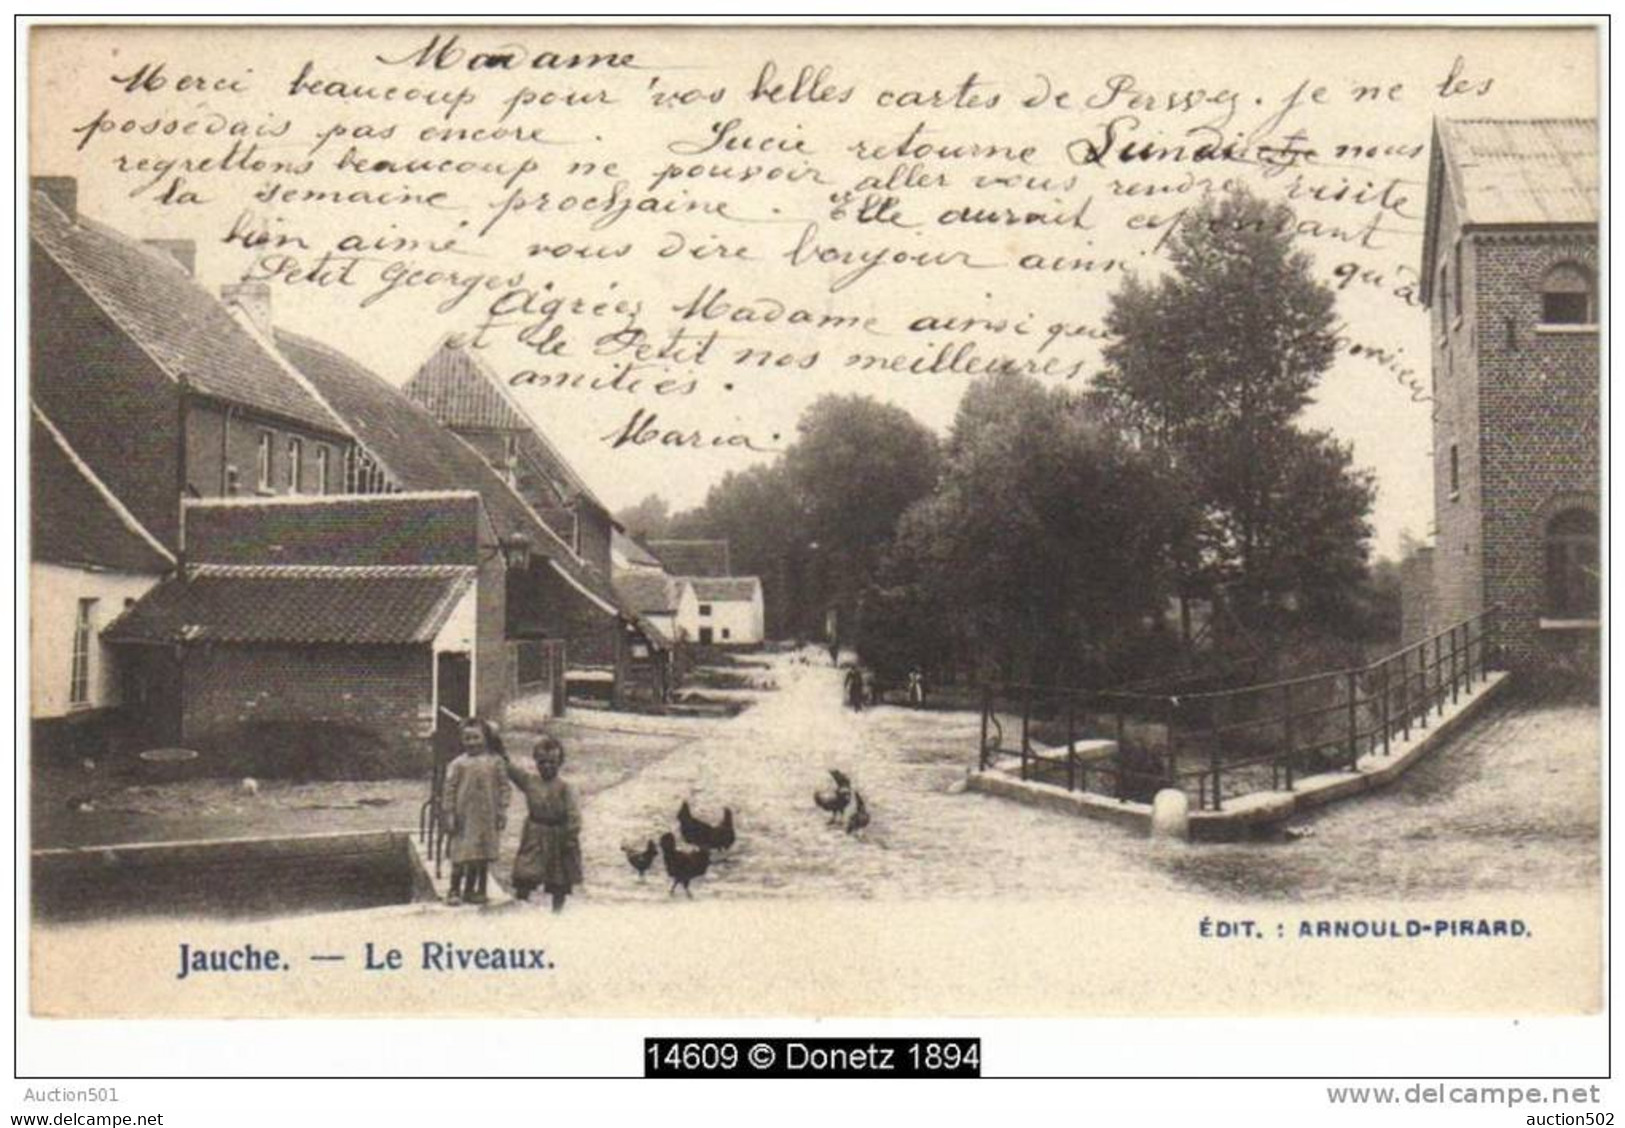 Madame
Merci beaucoup pour vos belles cartes de Perwez. je ne les
possédais pas encore. Lucie retourne Lundi et je nous
regrettons beaucoup ne pouvoir aller vous rendre visite
la semaine prochaine. Elle aurait cependant
bien aimé vous dire bonjour ainsi qu'à
Petit Georges.
Agréez Madame ainsi que Monsieur
et le Petit nos meilleures
amitiés.
Maria.
Jauche. — Le Riveaux.
ÉDIT. : ARNOULD-PIRARD.
14609 © Donetz 1894
Auction501
www.delcampe.net
www.delcampe.net
auction502